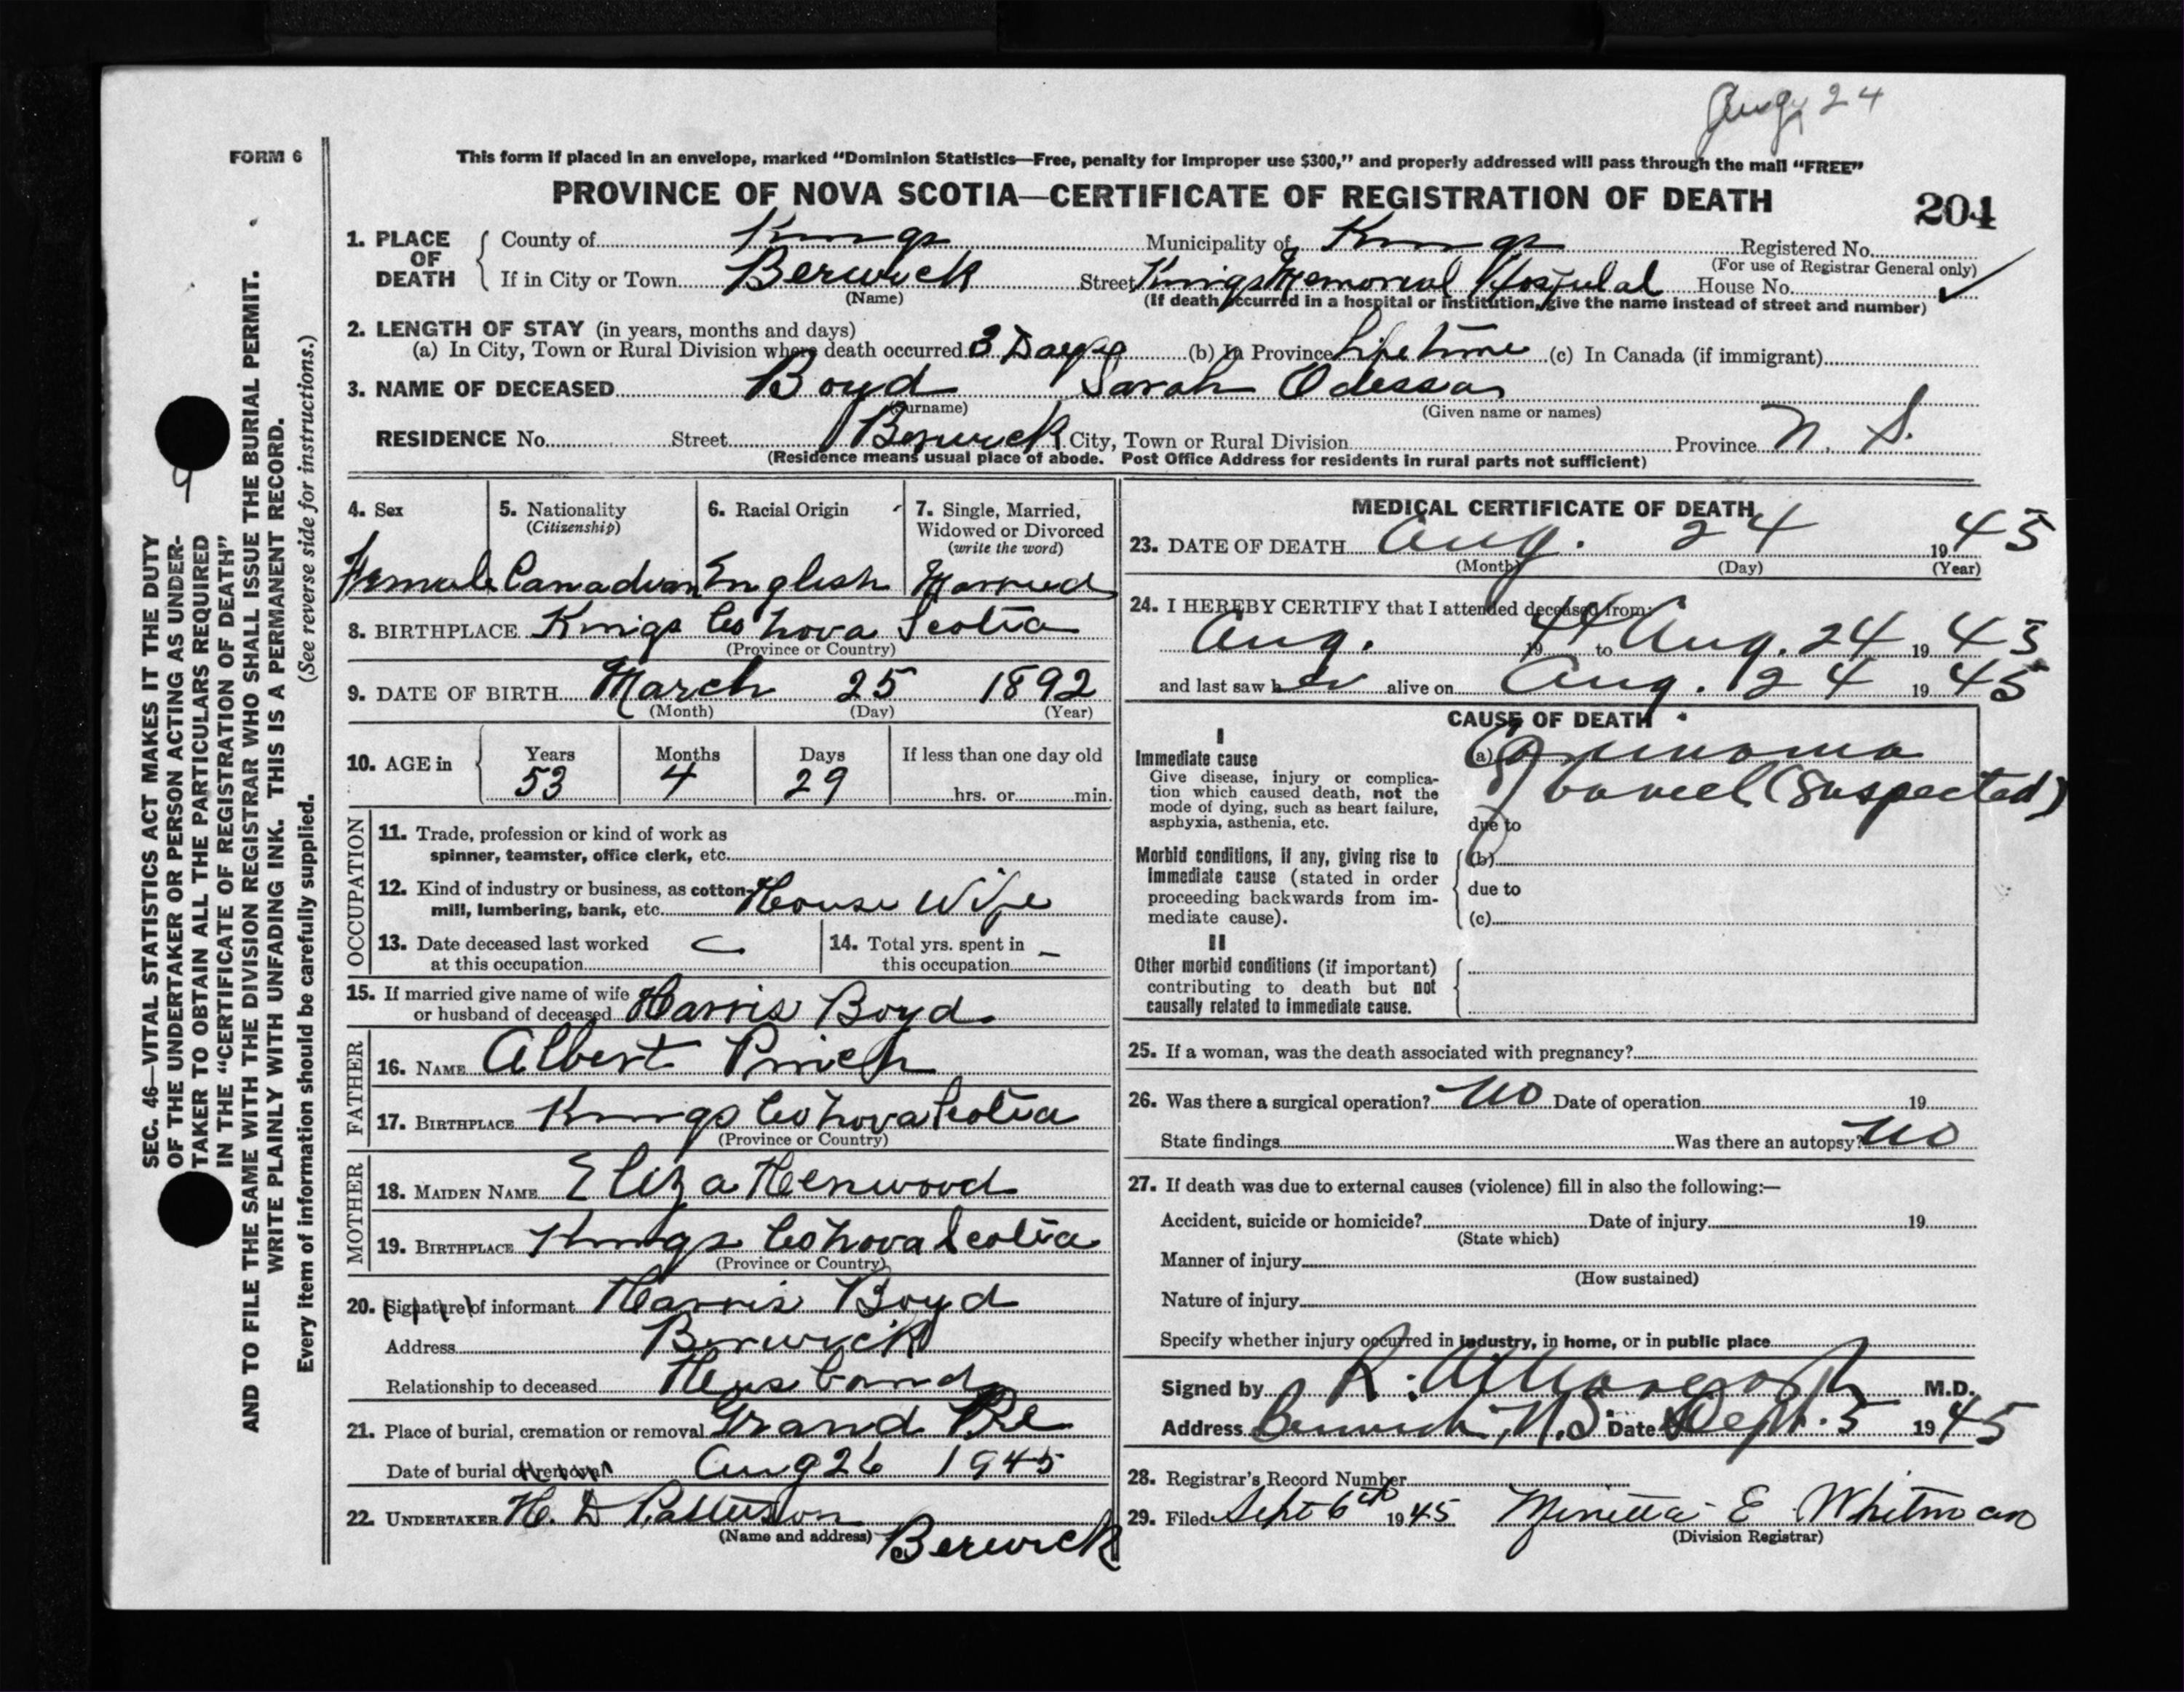 Aug 24
FORM 6
This form if placed in an envelope, marked "Dominion Statistics—Free, penalty for improper use $300," and properly addressed will pass through the mail "FREE"
PROVINCE OF NOVA SCOTIA—CERTIFICATE OF REGISTRATION OF DEATH
204
1. PLACE OF DEATH County of Kings Municipality of Kings Registered No.
(For use of Registrar General only)
If in City or Town Berwick Street Kings Memorial Hospital House No.
(Name) (If death occurred in a hospital or institution, give the name instead of street and number)
2. LENGTH OF STAY (in years, months and days)
(a) In City, Town or Rural Division where death occurred 3 Days (b) In Province Life time (c) In Canada (if immigrant)
3. NAME OF DECEASED Boyd Sarah Odessa
(Surname) (Given name or names)
RESIDENCE No. Street Berwick City, Town or Rural Division Province N. S.
(Residence means usual place of abode. Post Office Address for residents in rural parts not sufficient)
4. Sex 5. Nationality 6. Racial Origin 7. Single, Married,
(Citizenship) Widowed or Divorced
(write the word)
Female Canadian English Married
8. BIRTHPLACE Kings Co Nova Scotia
(Province or Country)
9. DATE OF BIRTH March 25 1892
(Month) (Day) (Year)
10. AGE in Years Months Days If less than one day old
53 4 29 hrs. or min.
OCCUPATION
11. Trade, profession or kind of work as
spinner, teamster, office clerk, etc.
12. Kind of industry or business, as cotton-
mill, lumbering, bank, etc. House Wife
13. Date deceased last worked
at this occupation
14. Total yrs. spent in
this occupation —
15. If married give name of wife
or husband of deceased Harris Boyd
FATHER
16. NAME Albert
17. BIRTHPLACE Kings Co Nova Scotia
(Province or Country)
MOTHER
18. MAIDEN NAME Eliza Henwood
19. BIRTHPLACE Kings Co Nova Scotia
(Province or Country)
20. Signature of informant Harris Boyd
Address Berwick
Relationship to deceased Husband
21. Place of burial, cremation or removal Grand Pre
Date of burial or removal Aug 26 1945
22. UNDERTAKER H. D Patterson
(Name and address) Berwick
MEDICAL CERTIFICATE OF DEATH
23. DATE OF DEATH Aug. 24 1945
(Month) (Day) (Year)
24. I HEREBY CERTIFY that I attended deceased from:
Aug. 19 44 to Aug. 24 19 45
and last saw her alive on Aug. 24 19 45
CAUSE OF DEATH
I
Immediate cause
Give disease, injury or complica-
tion which caused death, not the
mode of dying, such as heart failure,
asphyxia, asthenia, etc.
(a) Carcinoma
of bowel (Suspected)
due to
Morbid conditions, if any, giving rise to
immediate cause (stated in order
proceeding backwards from im-
mediate cause).
(b)
due to
(c)
II
Other morbid conditions (if important)
contributing to death but not
causally related to immediate cause.
25. If a woman, was the death associated with pregnancy?
26. Was there a surgical operation? No Date of operation 19
State findings Was there an autopsy? No
27. If death was due to external causes (violence) fill in also the following:—
Accident, suicide or homicide? Date of injury 19
(State which)
Manner of injury
(How sustained)
Nature of injury
Specify whether injury occurred in industry, in home, or in public place
Signed by R. M.D.
Address Berwick, N.S. Date Sept. 5 1945
28. Registrar's Record Number
29. Filed Sept 6th 1945 E Whitman
(Division Registrar)
SEC. 46—VITAL STATISTICS ACT MAKES IT THE DUTY
OF THE UNDERTAKER OR PERSON ACTING AS UNDER-
TAKER TO OBTAIN ALL THE PARTICULARS REQUIRED
IN THE "CERTIFICATE OF REGISTRATION OF DEATH"
AND TO FILE THE SAME WITH THE DIVISION REGISTRAR WHO SHALL ISSUE THE BURIAL PERMIT.
WRITE PLAINLY WITH UNFADING INK. THIS IS A PERMANENT RECORD.
Every item of information should be carefully supplied. (See reverse side for instructions.)